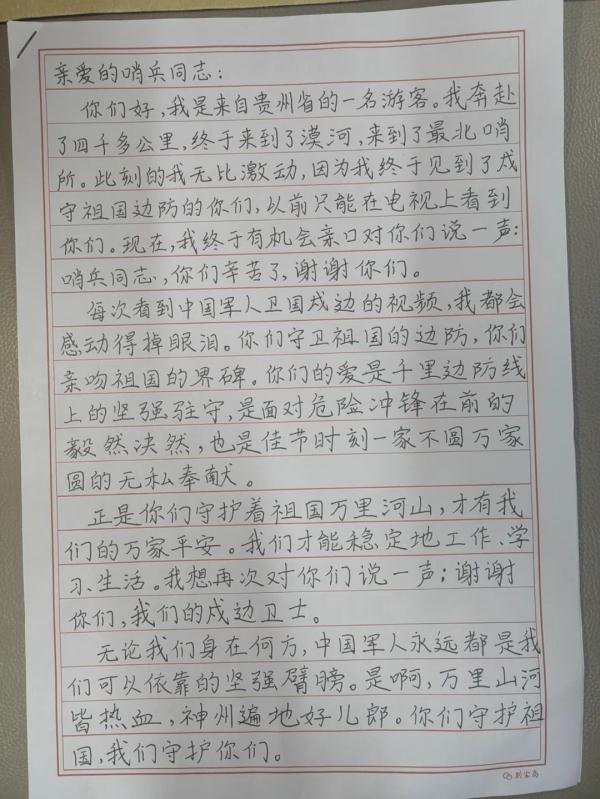 亲爱的哨兵同志：
你们好，我是来自贵州省的一名游客。我奔赴
了四千多公里，终于来到了漠河，来到了最北哨
所。此刻的我无比激动，因为我终于见到了戍
守祖国边防的你们，以前只能在电视上看到
你们。现在，我终于有机会亲口对你们说一声：
哨兵同志，你们辛苦了，谢谢你们。
每次看到中国军人卫国戍边的视频，我都会
感动得掉眼泪。你们守卫祖国的边防，你们
亲吻祖国的界碑。你们的爱是千里边防线
上的坚强驻守，是面对危险冲锋在前的
毅然决然，也是佳节时刻一家不圆万家
圆的无私奉献。
正是你们守护着祖国万里河山，才有我
们的万家平安。我们才能稳定地工作、学
习、生活。我想再次对你们说一声；谢谢
你们，我们的戍边卫士。
无论我们身在何方，中国军人永远都是我
们可以依靠的坚强臂膀。是啊，万里山河
皆热血，神州遍地好儿郎。你们守护祖
国，我们守护你们。